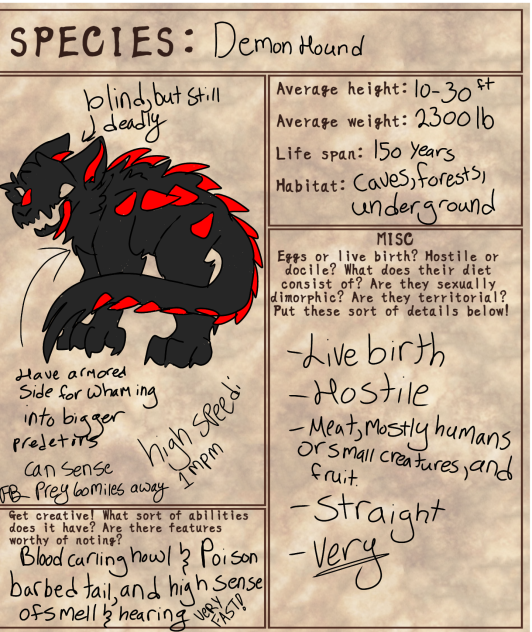 SPECIES: Demon Hound
blind, but still
deadly
Have armored
Side for Whaming
into bigger
predetirs
high speed:
1mpm
can sense
Prey 60miles away
Get creative! What sort of abilities
does it have? Are there features
worthy of noting?
Blood curling howl & Poison
barbed tail, and high sense
of smell & hearing VERY
FAST!
Average height: 10-30 ft
Average weight: 2300 lb
Life span: 150 years
Habitat: Caves, forests,
underground
MISC
Eggs or live birth? Hostile or
docile? What does their diet
consist of? Are they sexually
dimorphic? Are they territorial?
Put these sort of details below!
-Live birth
-Hostile
-Meat, Mostly humans
or small creatures, and
fruit.
-Straight
-Very